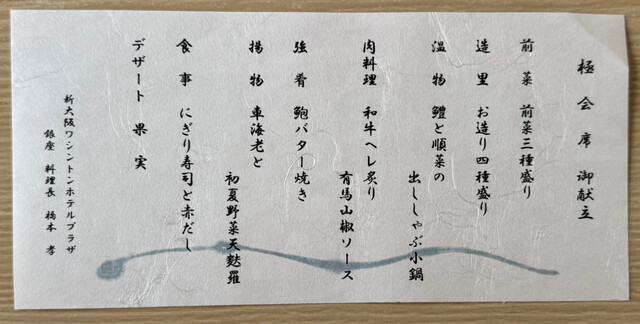 極会席 御献立
前菜 前菜三種盛り
造里 お造り四種盛り
温物 鱧と順菜の
出ししゃぶ小鍋
肉料理 和牛ヘレ炙り
有馬山椒ソース
強肴 鮑バター焼き
揚物 車海老と
初夏野菜天麩羅
食事 にぎり寿司と赤だし
デザート 果実
新大阪ワシントンホテルプラザ
銀座 料理長 橋本 孝